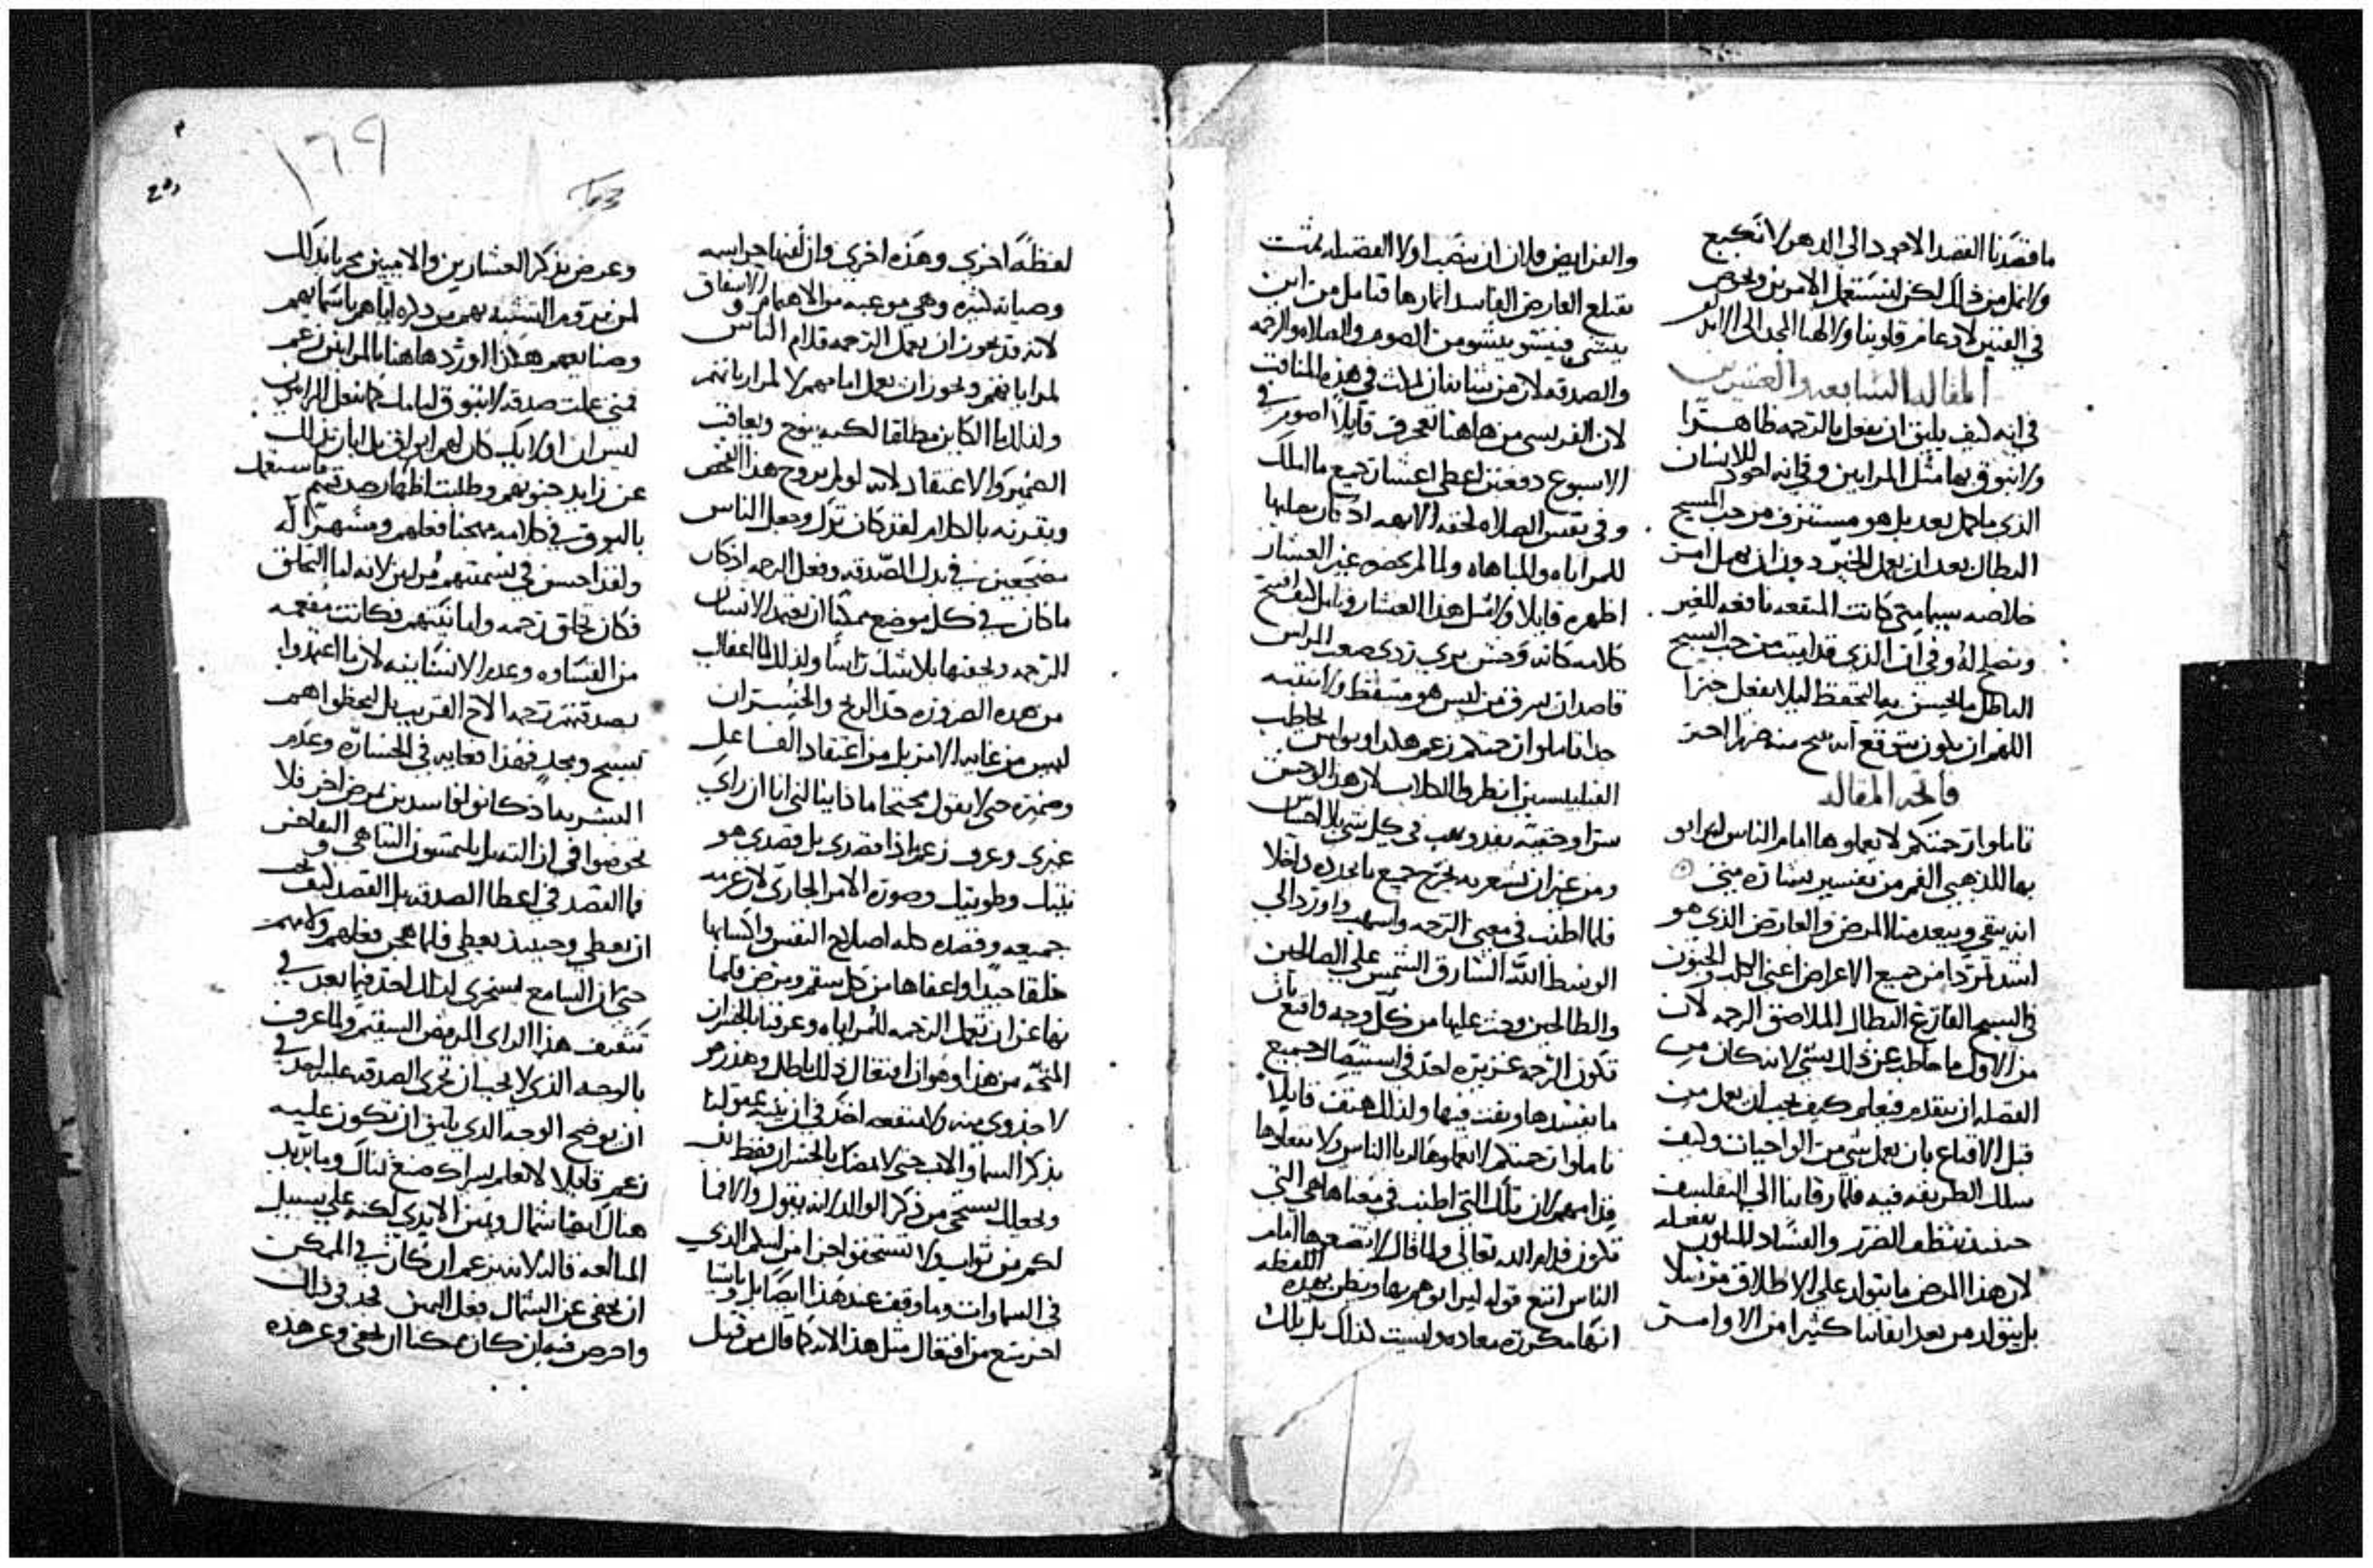 ما قصدنا القصد الاجود الى الدهر لا نجيع
ولا نمل من ذلك لكن لنستعمل الامرين ونحرص
في الفنين لادعام قلوبنا ولالهنا المجد الى الابد
المقاله السابعه والعشرين
في انه كيف يليق ان نفعل بالترحمه ظاهرا
ولا نبوق بها مثل المرايين وفي انه اجود للانسان
الذي ما عمل بعد بل هو مستنزف من حب المسيح
البطال بعد ان يعمل الخير دون ان يهمل امر
خلاصه سيما متى كانت المنفعه نافعه للغير
ويصلح له وفي ان الذي قد ابتت من حب السبح
الباطل ما يحسن به التحفظ ليلا يفعل خيرا
اللهم ان يكون يتوقع انه يبيح منه ضررا اخر
فاتحه المقاله
تاملوا ترحمتكم لا تعملوها امام الناس ليرايو
بها للذهبي الفم من تفسير بشارة متى
انه ينقي ويبعد منا المرض والعارض الذي هو
اشد تمردا من جميع الاعراض اعني الكلب والجنون
في السبح الفارغ البطال الملاصق الرحمه لان
من الاول ما خاطب عن ذلك بشي لانه كان من
الفضله ان يتقدم فيعلم كيف يجب ان يعمل من
قبل الاقناع بان يعمل شي من الواجبات وكيف
سلك الطريقه فيه فلما رقانا الى التفلسف
حينيذ ينظف الضرر والفساد المتلون بفعله
لان هذا المرض ما يتولد على الاطلاق مرتبلا
بل يتولد من بعد اتقاننا كثيرا من الاوامر
والفرايض فلان ان ينصب اولا الفضيله نمت
يقتلع العارض الفاسد اثمارها فتامل من اين
يبتدي فينشو ينشو من الصوم والصلاه والرحمه
والصدقه لان من شانه ان يلبث في هذه المناقب
لان الفريسي من هاهنا تعجرف قايلا اصوم في
الاسبوع دفعتين اعطي اعشار جميع ما املك
وفي نفس الصلاه لحقه الابهه اذ كان يصليها
للمراياه والمباهاه ولما لم يحضر غير العشار
اظهره قايلا ولا مثل هذا العشار وتامل كيف افتتح
كلامه كانه وحش بري ردي صعب المراس
قاصدا ان يسرق من ليس هو متيقظ ولا منتبه
جدا تاملوا ترحمتكم زعم هكذا وبولس يخاطب
الفيلبيسين انظروا الكلاب لان هذا الوحش
سرا وخفيه يفد ويسب في كل شي بلا احساس
ومن غير ان يشعر به يخرج جميع ما يجده داخلا
فلما اطنب في معنى الترحمه واسهب واورد الى
الوسط الله الشارق الشمس على الصالحين
والطالحين وحث عليها من كل وجه واقنع بان
تكون الرحمه غزيره اخذ في استيصال جميع
ما يفسدها ويفت فيها ولذلك هتف قايلا
تاملوا ترحمتكم لا تعملوها لريا الناس ولا تفعلوها
قدامهم لان تلك التي اطنب في معناها هي التي
تكون قدام الله تعالى ولما قال لا تصنعوها امام
الناس اتبع قوله ليرايوهم بها ويظن بهذه اللفظه
انها مكرره معاده وليست كذلك بل تلك
١٦٩
لفظة اخرى وهذه اخرى وان لفيها حراسه
وصيانه كثيره وهي موعبه من الاهتمام والاشفاق
لانه قد يجوز ان يعمل الترحمه قدام الناس
لمراياتهم ويجوز ان يعمل امامهم لا لمراياتهم
ولذلك ما الكاين مطلقا لكنه يتوج ويعاقب
الضمير والاعتقاد لانه لو لم يروج هذا الفحص
ويقرنه بالكلام لقد كان ترك وجعل الناس
مضجعين في بذل الصدقه وفعل الرحمه اذ كان
ما كان في كل موضع ممكنا ان يعتمد الانسان
الترحمه ويخفيها بلا شك راسا ولذلك لما اعفاك
من هذه الضروره حد الربح والخسران
ليس من غايه الامر بل من اعتقاد الفاعل
وضميره حتى لا يقول محتجا ماذا ينالني انا ان راى
غيري وعرف زعم اذا قصدي بل قصدي هو
نيتك وطويتك وصورة الامر الجاري لان غرضه
جميعه وقصده كله اصلاح النفس واكسابها
خلقا جيدا واعفاها من كل سقم ومرض فلما
نها عن ان تعمل الترحمه للمراياه وعرفنا بالخسران
المتجه من هذا وهو ان افتعال ذلك باطل وهذر هو
لا جدوى منه ولا منفعه اخذ في ان ينبه عقولنا
بذكر السما والاب حتى لا يمضك بالخسران فقط بل
ويجعلك تستحي من ذكر الوالد لانه يقول والا فما
لكم من ثواب ولا تستحقو اجرا من ابيكم الذي
في السماوات وما وقف عند هذا ايضا بل وباشيا
اخر يمنع من افتعال مثل هذا لانه كما قال من قبل
وعرض بذكر العشارين والامميين محر بانه لك
لمن يروم التشبه بهم من ذكره اياهم باسمايهم
وصنايعهم هكذا اوردها هنا بالمرايين زعم
فمتى عملت صدقه لا تبوق امامك كما تفعل المرايين
ليس ان اولايك كان لهم ابواق بل ابان بذلك
عن زايد جنونهم وطلبت اظهار صدقتهم فاستعمل
بالبوق في كلامه مهجنا فعلهم ومشهرا له
ولقد احسن في تسميتهم مراين لانه اما التخلق
فكان تخلق ترحمه واما نيتهم فكانت مفعمه
من القساوه وعدم الانسانيه لان ما اعتمدوا
بصدقتهم ترحم الاخ القريب بل ليحظوا هم
بسبح ومجد فهذا فغايه في الخساره وعدم
البشريه اذ كانو افاسدين لغرض اخر فلا
نخوضوا في ان التبدل يلتمسون التباهي والتفاخر
فما القصد في اعطا الصدقه بل القصد كيف يجب
ان يعطي وحينيذ يعطي فلما هجن فعلهم ولامهم
حتى ان السامع يستخزى لذلك اخذ فيما بعد في
تثقيف هذا الراي المرفض السقيم ولما عرف
بالوجه الذي لا يجب ان تجري الصدقه عليه اخذ في
ان يوضح الوجه الذي يليق ان تكون عليه
زعم قايلا لا تعلم يسراك ما تصنع يمناك وما يريد
هناك ايضا شمال ويمين الايدي لكنه على سبيل
المبالغه قال ذلك لانه يزعم ان كان في الممكن
ان يخفى عن الشمال فعل اليمين فجد في ذلك
واحرص فيه ان كان ممكنا ان يخفى وعن هذه